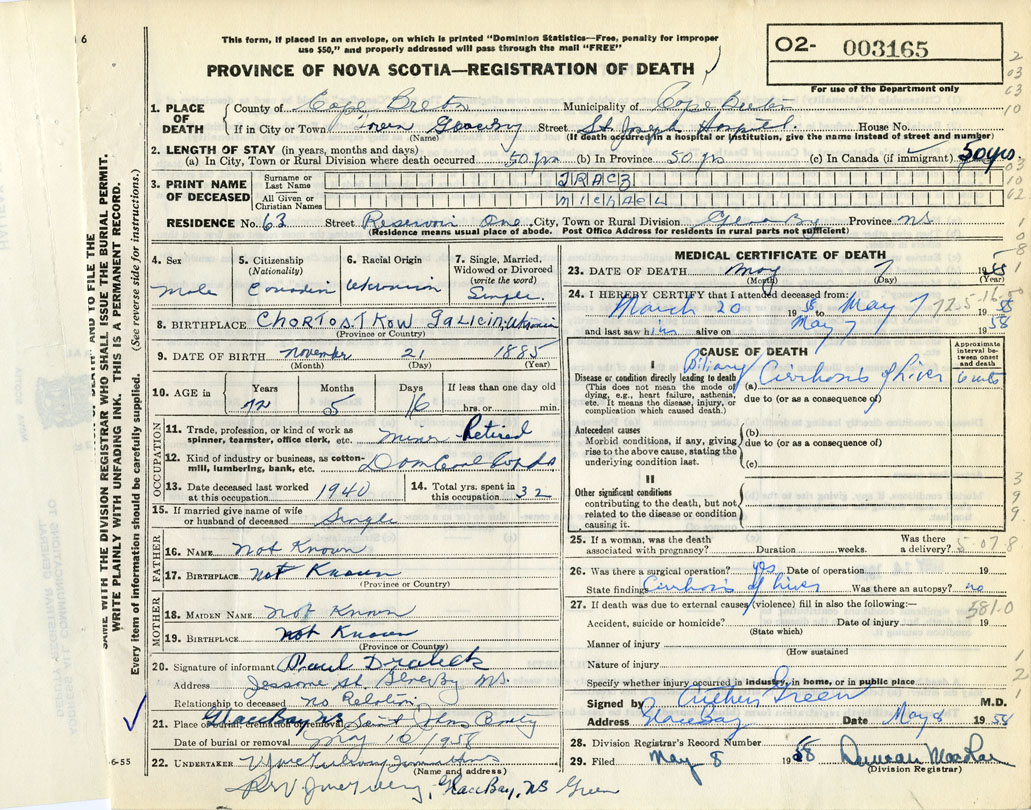 6
This form, if placed in an envelope, on which is printed "Dominion Statistics—Free, penalty for improper
use $50," and properly addressed will pass through the mail "FREE"
PROVINCE OF NOVA SCOTIA—REGISTRATION OF DEATH
O2- 003165
For use of the Department only
1. PLACE OF DEATH
County of Cape Breton Municipality of Cape Breton
If in City or Town Town Glace Bay Street St. Joseph Hospital House No.
(Name) (If death occurred in a hospital or institution, give the name instead of street and number)
2. LENGTH OF STAY (in years, months and days)
(a) In City, Town or Rural Division where death occurred 50 yrs (b) In Province 50 yrs (c) In Canada (if immigrant) 50 yrs
3. PRINT NAME OF DECEASED
Surname or Last Name TRACZ
All Given or Christian Names MICHAEL
RESIDENCE No. 63 Street Reservoir One City, Town or Rural Division Glace Bay Province NS
(Residence means usual place of abode. Post Office Address for residents in rural parts not sufficient)
4. Sex Male
5. Citizenship (Nationality) Canadian
6. Racial Origin Ukranian
7. Single, Married, Widowed or Divorced (write the word) Single.
8. BIRTHPLACE CHORTOSTKOW GALICIN, Ukrania
(Province or Country)
9. DATE OF BIRTH November 21 1885
(Month) (Day) (Year)
10. AGE in Years 72 Months 5 Days 16 If less than one day old hrs. or min.
OCCUPATION
11. Trade, profession, or kind of work as spinner, teamster, office clerk, etc. Miner Retired
12. Kind of industry or business, as cotton-mill, lumbering, bank, etc. Dom Coal
13. Date deceased last worked at this occupation 1940
14. Total yrs. spent in this occupation 32
15. If married give name of wife or husband of deceased Single
FATHER
16. NAME Not Known
17. BIRTHPLACE Not Known
(Province or Country)
MOTHER
18. MAIDEN NAME Not Known
19. BIRTHPLACE Not Known
(Province or Country)
20. Signature of informant Paul
Address St. Glace Bay NS.
Relationship to deceased no Relation
21. Place of burial, cremation or removal Glace Bay NS Saint Johns
Date of burial or removal May 10/1958
22. UNDERTAKER
(Name and address)
Glace Bay, NS Green
MEDICAL CERTIFICATE OF DEATH
23. DATE OF DEATH May 7 1958
(Month) (Day) (Year)
24. I HEREBY CERTIFY that I attended deceased from:
March 20 1958 to May 7 1958
72-5-16
and last saw him alive on May 7 1958
CAUSE OF DEATH
Approximate interval between onset and death
I
Disease or condition directly leading to death
(This does not mean the mode of dying, e.g., heart failure, asthenia, etc. It means the disease, injury, or complication which caused death.)
(a) Biliary Cirrhosis of liver
due to (or as a consequence of)
Antecedent causes
Morbid conditions, if any, giving rise to the above cause, stating the underlying condition last.
(b)
due to (or as a consequence of)
(c)
II
Other significant conditions
contributing to the death, but not related to the disease or condition causing it.
25. If a woman, was the death associated with pregnancy? Duration weeks. Was there a delivery?
5-07.8
26. Was there a surgical operation? yes Date of operation 19
State findings Cirrhosis of liver Was there an autopsy? no
27. If death was due to external causes (violence) fill in also the following:—
581.0
Accident, suicide or homicide? Date of injury 19
(State which)
Manner of injury
(How sustained
Nature of injury
Specify whether injury occurred in industry, in home, or in public place
Signed by Arthur Green M.D.
Address Glace Bay Date May 8 1958
28. Division Registrar's Record Number
29. Filed May 8 1958 Duncan
(Division Registrar)
WRITE PLAINLY WITH UNFADING INK. THIS IS A PERMANENT RECORD.
Every item of information should be carefully supplied. (See reverse side for instructions.)
WITH THE DIVISION REGISTRAR WHO SHALL ISSUE THE BURIAL PERMIT.
AND TO FILE THE
6-55